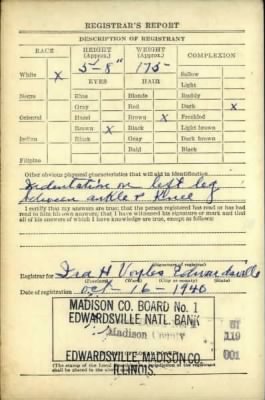 REGISTRAR'S REPORT
DESCRIPTION OF REGISTRANT
RACE HEIGHT (Approx.) WEIGHT (Approx.) COMPLEXION
White X 5-8" 175 Sallow
Light
EYES HAIR Ruddy
Negro Blue Blonde Dark X
Gray Red Freckled
Oriental Hazel Brown X Light brown
Brown X Black Dark brown
Indian Black Gray Black
Bald
Filipino
Other obvious physical characteristics that will aid in identification
Indentation on left leg
between ankle & knee
I certify that my answers are true; that the person registered has read or has had
read to him his own answers; that I have witnessed his signature or mark and that
all of his answers of which I have knowledge are true, except as follows:
(Signature of registrar)
Registrar for Ira H Voyles Edwardsville
(Precinct) (Ward) (City or county) (State)
Date of registration Oct 16 - 1940
MADISON CO. BOARD No. 1
EDWARDSVILLE NATL. BANK
Madison County
119
001
EDWARDSVILLE, MADISON CO.
ILLINOIS